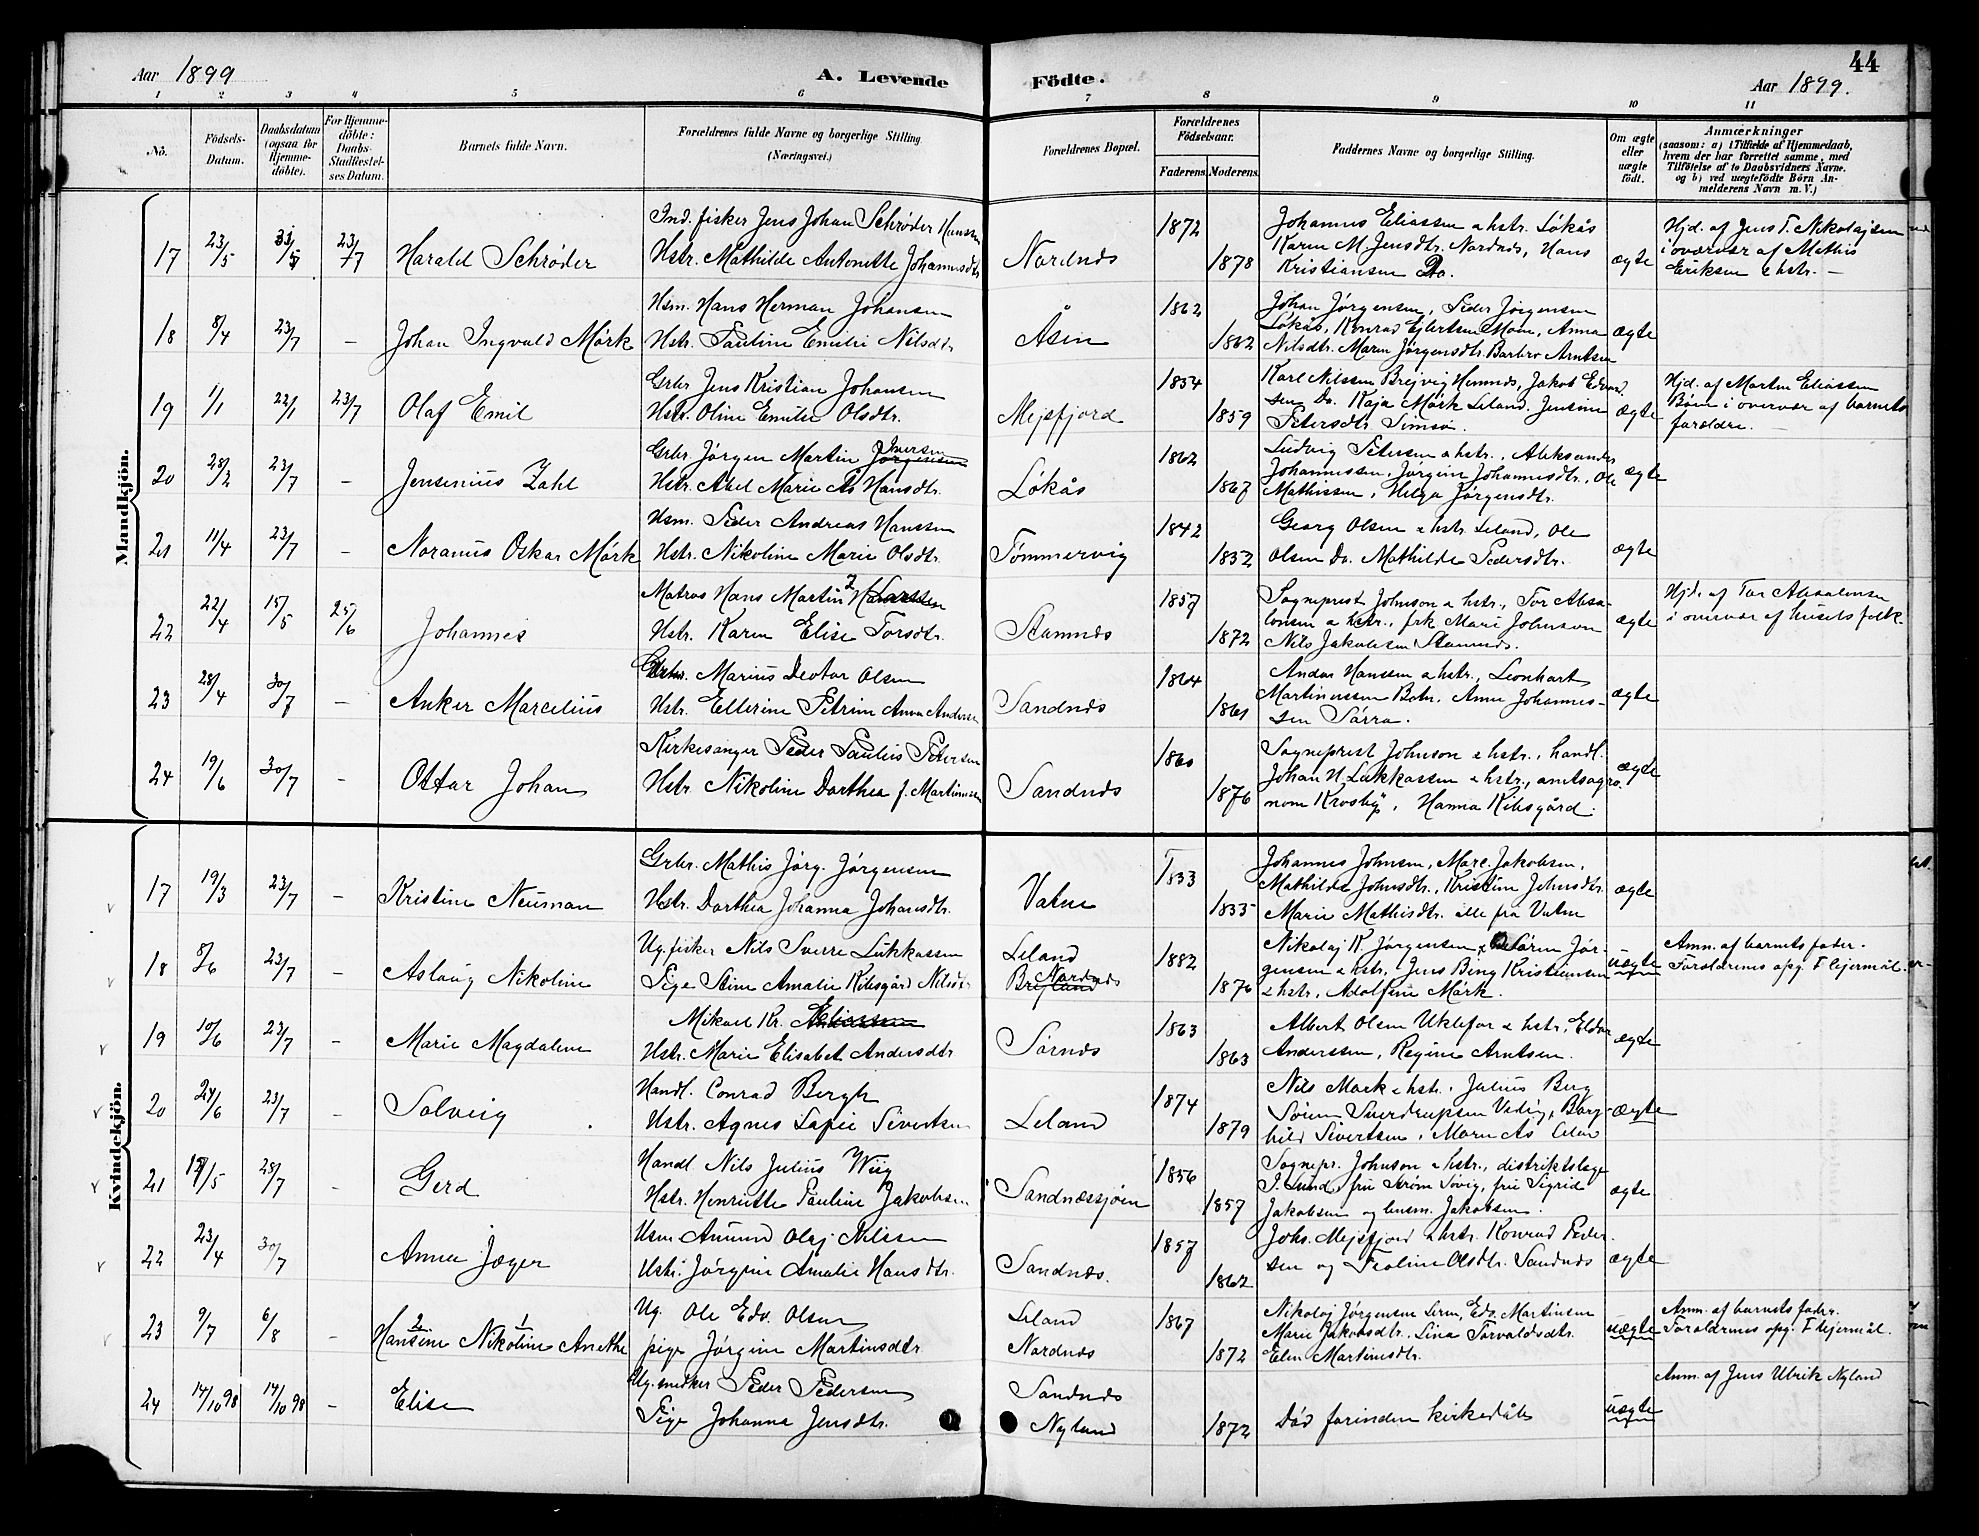 Aar 1899
A. Levende Födte.
44
Aar 1899.
1 2 3 4 5 6 7 8 9 10 11
No.
Födsels-Datum.
Daabsdatum (ogsaa for Hjemmedöbte).
For Hjemmedöbte: Daabs-Stadfæstelses Datum.
Barnets fulde Navn.
Forældrenes fulde Navne og borgerlige Stilling (Næringsvei.)
Forældrenes Bopæl.
Forældrenes Födselsaar.
Faderens. Moderens.
Faddernes Navne og borgerlige Stilling.
Om ægte eller uægte födt.
Anmærkninger
(saasom: a) i Tilfælde af Hjemmedaab, hvem der har forrettet samme, med Tilföielse af to Daabsvidners Navne. og b) ved uægtefödte Börn Anmelderens Navn m. V.)
Mandkjön.
17 23/5 23/7 Harald Schrøder
Ind. fisker Jens Johan Schrøder Hanssen
Hstr. Mathilde Antonette Johannesdtr.
Nordnæs 1872 1878
Johannes Eliassen & hstr. Løkås
Karen M. Jensdtr. Nordnæs, Hans
Kristiansen Do.
ægte
Hjd. af Jens T. Nikolajsen
i overvær af Mathis
Eriksen & hstr. —
18 8/4 23/7 — Johan Ingvald Mørk
Hsm. Hans Herman Johansen
Hstr. Pauline Emilie Nilsdtr
Åsen 1862 1862
Johan Jørgensen, Peder Jørgensen
Løkås, Konrad Ejlertsen Moen, Anna
Nilsdtr. Maren Jørgensdtr. Barbro Arntsen
ægte
19 1/1 22/1 23/7 Olaf Emil
Grbr. Jens Kristian Johansen
Hstr. Oline Emilie Olsdtr.
Mejsfjord 1854 1859
Karl Nilssen Brejvig Hemnæs, Jakob Edvard
sen Do. Kaja Mørk Leland. Jensine
Petersdtr. Simsø.
ægte
Hjd. af Morten Eliassen
Bøen i overvær af barnets
forældre. —
20 28/2 23/7 — Jensenius Zahl
Grbr. Jørgen Martin Jørgensen Iversen
Hstr. Abel Marie Ås Hansdtr.
Løkås 1862 1867
Ludvig Petersen & hstr., Aleksander
Johannessen, Jørgine Johannesdtr., Ole
Mathissen, Helga Jørgensdtr.
ægte
21 11/4 23/7 — Noranus Oskar Mørk
Hsm. Peder Andreas Hanssen
Hstr. Nikoline Marie Olsdtr.
Tømmervig 1842 1852
Georg Olsen & hstr. Leland, Ole
Olsen Do. Mathilde Pedersdtr.
ægte
22 22/4 15/5 25/6 Johannes
Matros Hans Martin
Hstr. Karen Elise Torsdtr.
Stamnæs 1857 1872
Sogneprest Johnson & hstr., Tor Absa-
lonsen & hstr., frk Marie Johnson
Nils Jakobsen Stamnæs.
ægte
Hjd. af Tor Absalonsen
i overvær af husets folk
23 28/4 30/7 — Anker Marcelius
Grbr. Marius Deotor Olsen
Hstr. Ellerine Petrine Anna Anderse
Sandnæs 1864 1861
Andor Hanssen & hstr., Leonhart
Martinussen Botn. Anne Johannes-
sen Sørra.
ægte
24 19/6 30/7 — Ottar Johan
Kirkesanger Peder Paulus Petersen
Hstr. Nikoline Dorthea f. Martinussen
Sandnæs 1860 1876
Sogneprest Johnson & hstr., handl.
Johan N. Lukkassen & hstr., amtsagro
nom Krosby, Hanna Kibsgård.
ægte
Kvindekjön.
17 19/3 23/7 — Kristine Neuman
Grbr. Mathis Jørg. Jørgensen
Hstr. Dorthea Johanna Johansdtr.
Vatne 1833 1835
Johannes Johnsen, Marc. Jakobsen,
Mathilde Johnsdtr., Kristine Johnsdtr.
Marie Mathisdtr. alle fra Vatne
ægte
18 8/6 23/7 — Aslaug Nikoline
Ug. fisker Nils Sverre Lukkassen
Pige Stine Amalie Kibsgård Nilsdtr
Leland
Nordnæs 1882 1876
Nikolaj K. Jørgensen & Søren Jør-
gensen & hstr. Jens Bing Kristiansen
& hstr., Adolfine Mørk.
uægte
Anm. af barnets fader.
Forældrenes opg. 1 lejermål.
19 10/6 23/7 — Marie Magdalene
Mikael Kr. Eliassen
Hstr. Marie Elisabet Andersdtr
Sørnæs 1863 1863
Albert Olsen Uklefor & hstr., Eldor
Anderssen, Regine Arntsen.
ægte
20 24/6 23/7 — Solveig
Handl. Conrad Bergh
Hstr. Agnes Sofie Sivertsen
Leland 1874 1879
Nils Mork & hstr. Julius Berg
Søren Sverdrupsen Veding, Borg-
hild Sivertsen, Maren Ås Leland
ægte
21 18/5 23/7 — Gerd
Handl. Nils Julius Wiig
Hstr. Henriette Pauline Jakobsen
Sandnæssjøen 1856 1857
Sognepr. Johnson & hstr., distriktslæge
J. Lund, fru Strøm Søvig, fru Sigrid
Jakobsen og lensm. Jakobsen.
ægte
22 23/4 30/7 Anna Jæger
Hsm Amund Olaj Nilssen
Hstr. Jørgine Amalie Hansdtr.
Sandnæs. 1857 1862
Johs. Mejsfjord & hstr. Konrad Peder-
sen og Froline Olsdtr. Sandnæs
ægte
23 9/7 6/8 — Hansine Nikoline Anethe
Ug. Ole Edv. Olsen
pige Jørgine Martinsdtr.
Leland
Nordnæs 1867 1872
Nikolaj Jørgensen Leren, Edv. Martinsen
Marie Jakobsdtr., Lina Torvaldsdtr.
Elen Martinsdtr.
uægte
Anm. af barnets fader.
Forældrenes opg. 1 lejermål.
24 14/10 98 14/10 98 — Elise
Ug. snedker Peder Pedersen
Pige Johanna Jensdtr.
Sandnæs
Nyland 1872
Død forinden kirkedåb
uægte
Anm. af Jens Ulrik Nyland